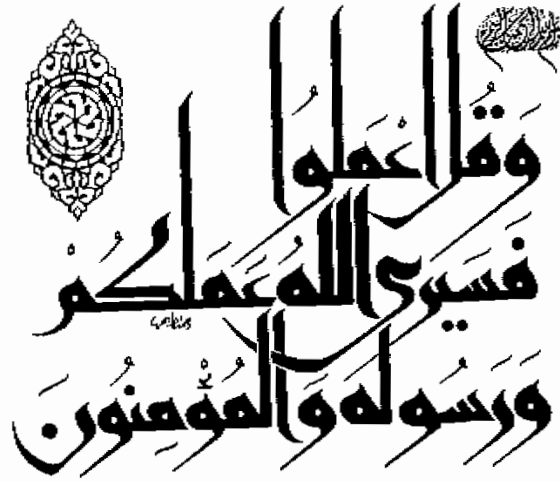 وَقُلِ اعْمَلُوا
فَسَيَرَى اللَّهُ عَمَلَكُمْ
وَرَسُولُهُ وَالْمُؤْمِنُونَ